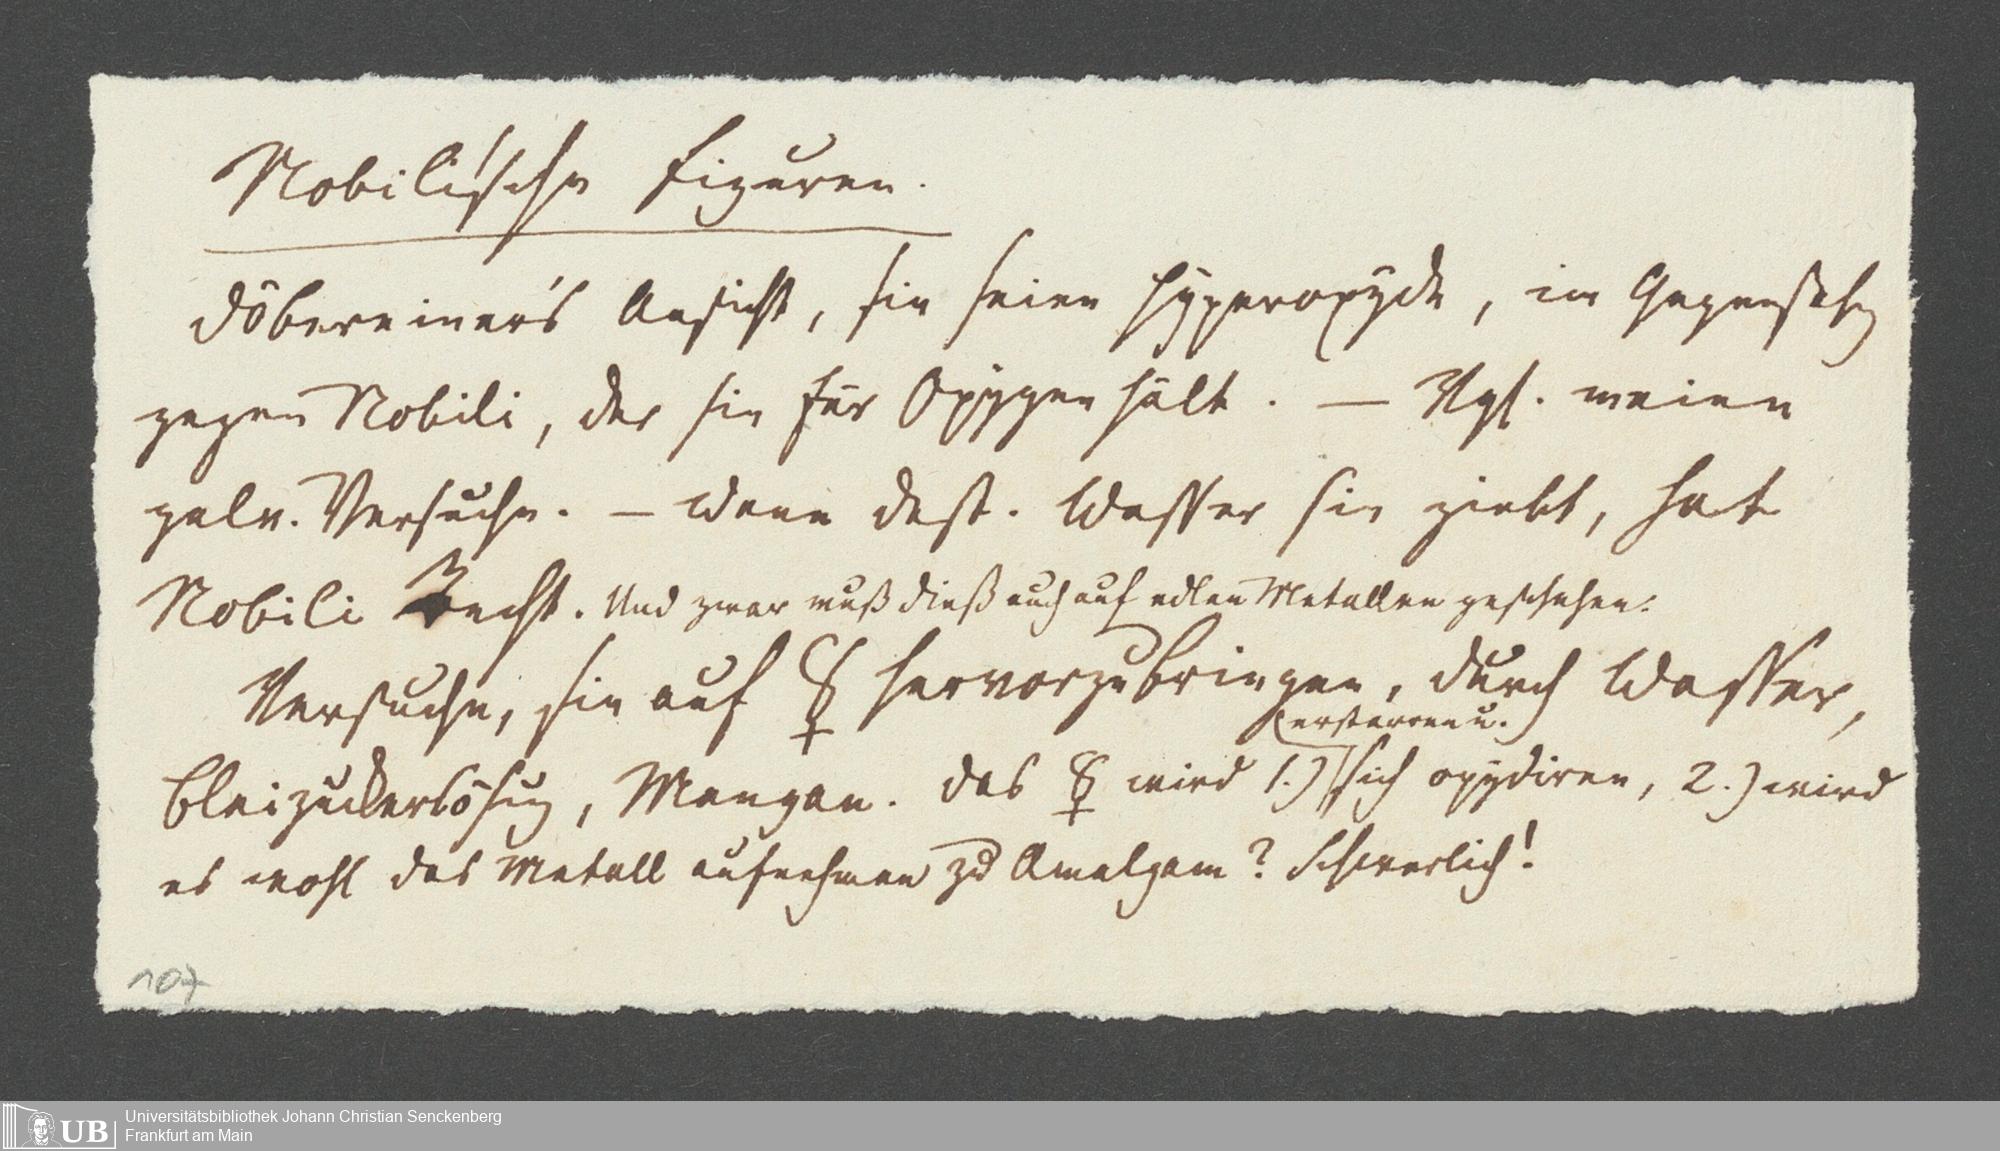 Nobili'sche Figuren.
Döbereiner's Ansicht, sie seien Hÿperoxÿde, im Gegensatz
gegen Nobili, der sie für Oxÿgen hält. — Vgl. meine
galv. Versuche. — Wenn dest. Wasser sie giebt, hat
Nobili Recht. Und zwar muß dieß auch auf edlen Metallen geschehen.
Versuche, sie auf ☿ hervorzubringen, durch Wasser,
erstarren u.
Bleizuckerlösung, Mangan. Das ☿ wird 1.) sich oxÿdiren, 2.) wird
es wohl das Metall aufnehmen zu Amalgam? Schwerlich!
107
UB
Universitätsbibliothek Johann Christian Senckenberg
Frankfurt am Main